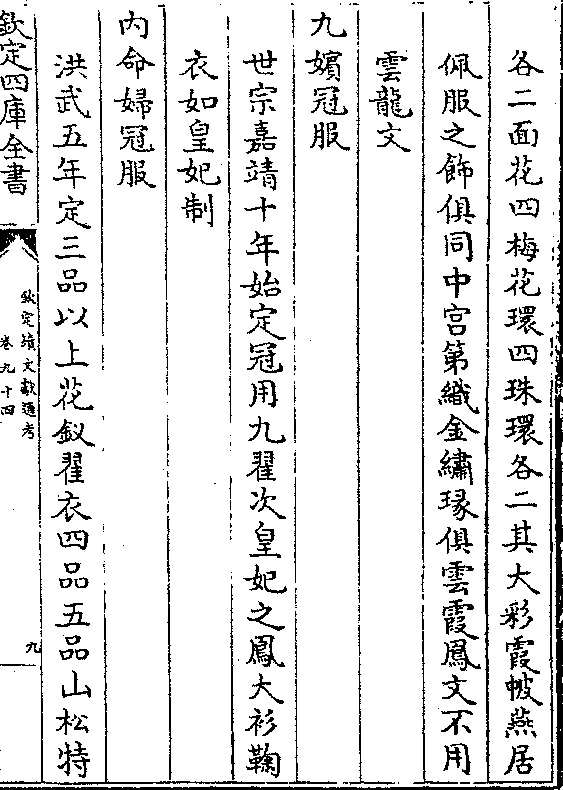 各二面花四梅花環四珠環各二其大彩霞帔燕居
佩服之飾俱同中宫第織金繡瑑俱雲霞鳳文不用
雲龍文
九嬪冠服
世宗嘉靖十年始定冠用九翟次皇妃之鳳大衫鞠
衣如皇妃制
内命婦冠服
洪武五年定三品以上花釵翟衣四品五品山松特
欽定四庫全書
欽定續文獻通考
卷九十四
九